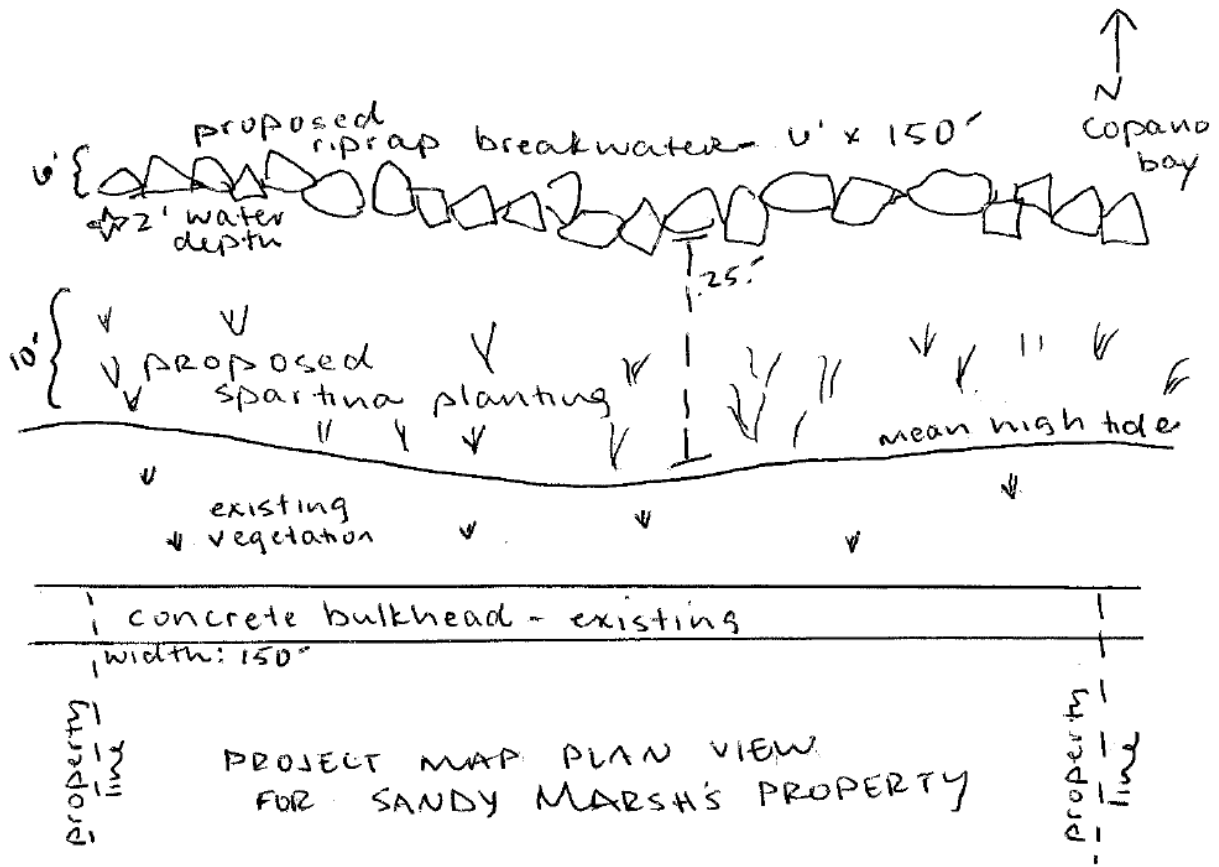 N
Copano
bay
proposed
riprap breakwater- 6' x 150'
6'
2' water
depth
25'
10'
proposed
spartina planting
mean high tide
existing
vegetation
concrete bulkhead - existing
width: 150'
property
line
property
line
PROJECT MAP PLAN VIEW
FOR SANDY MARSH'S PROPERTY